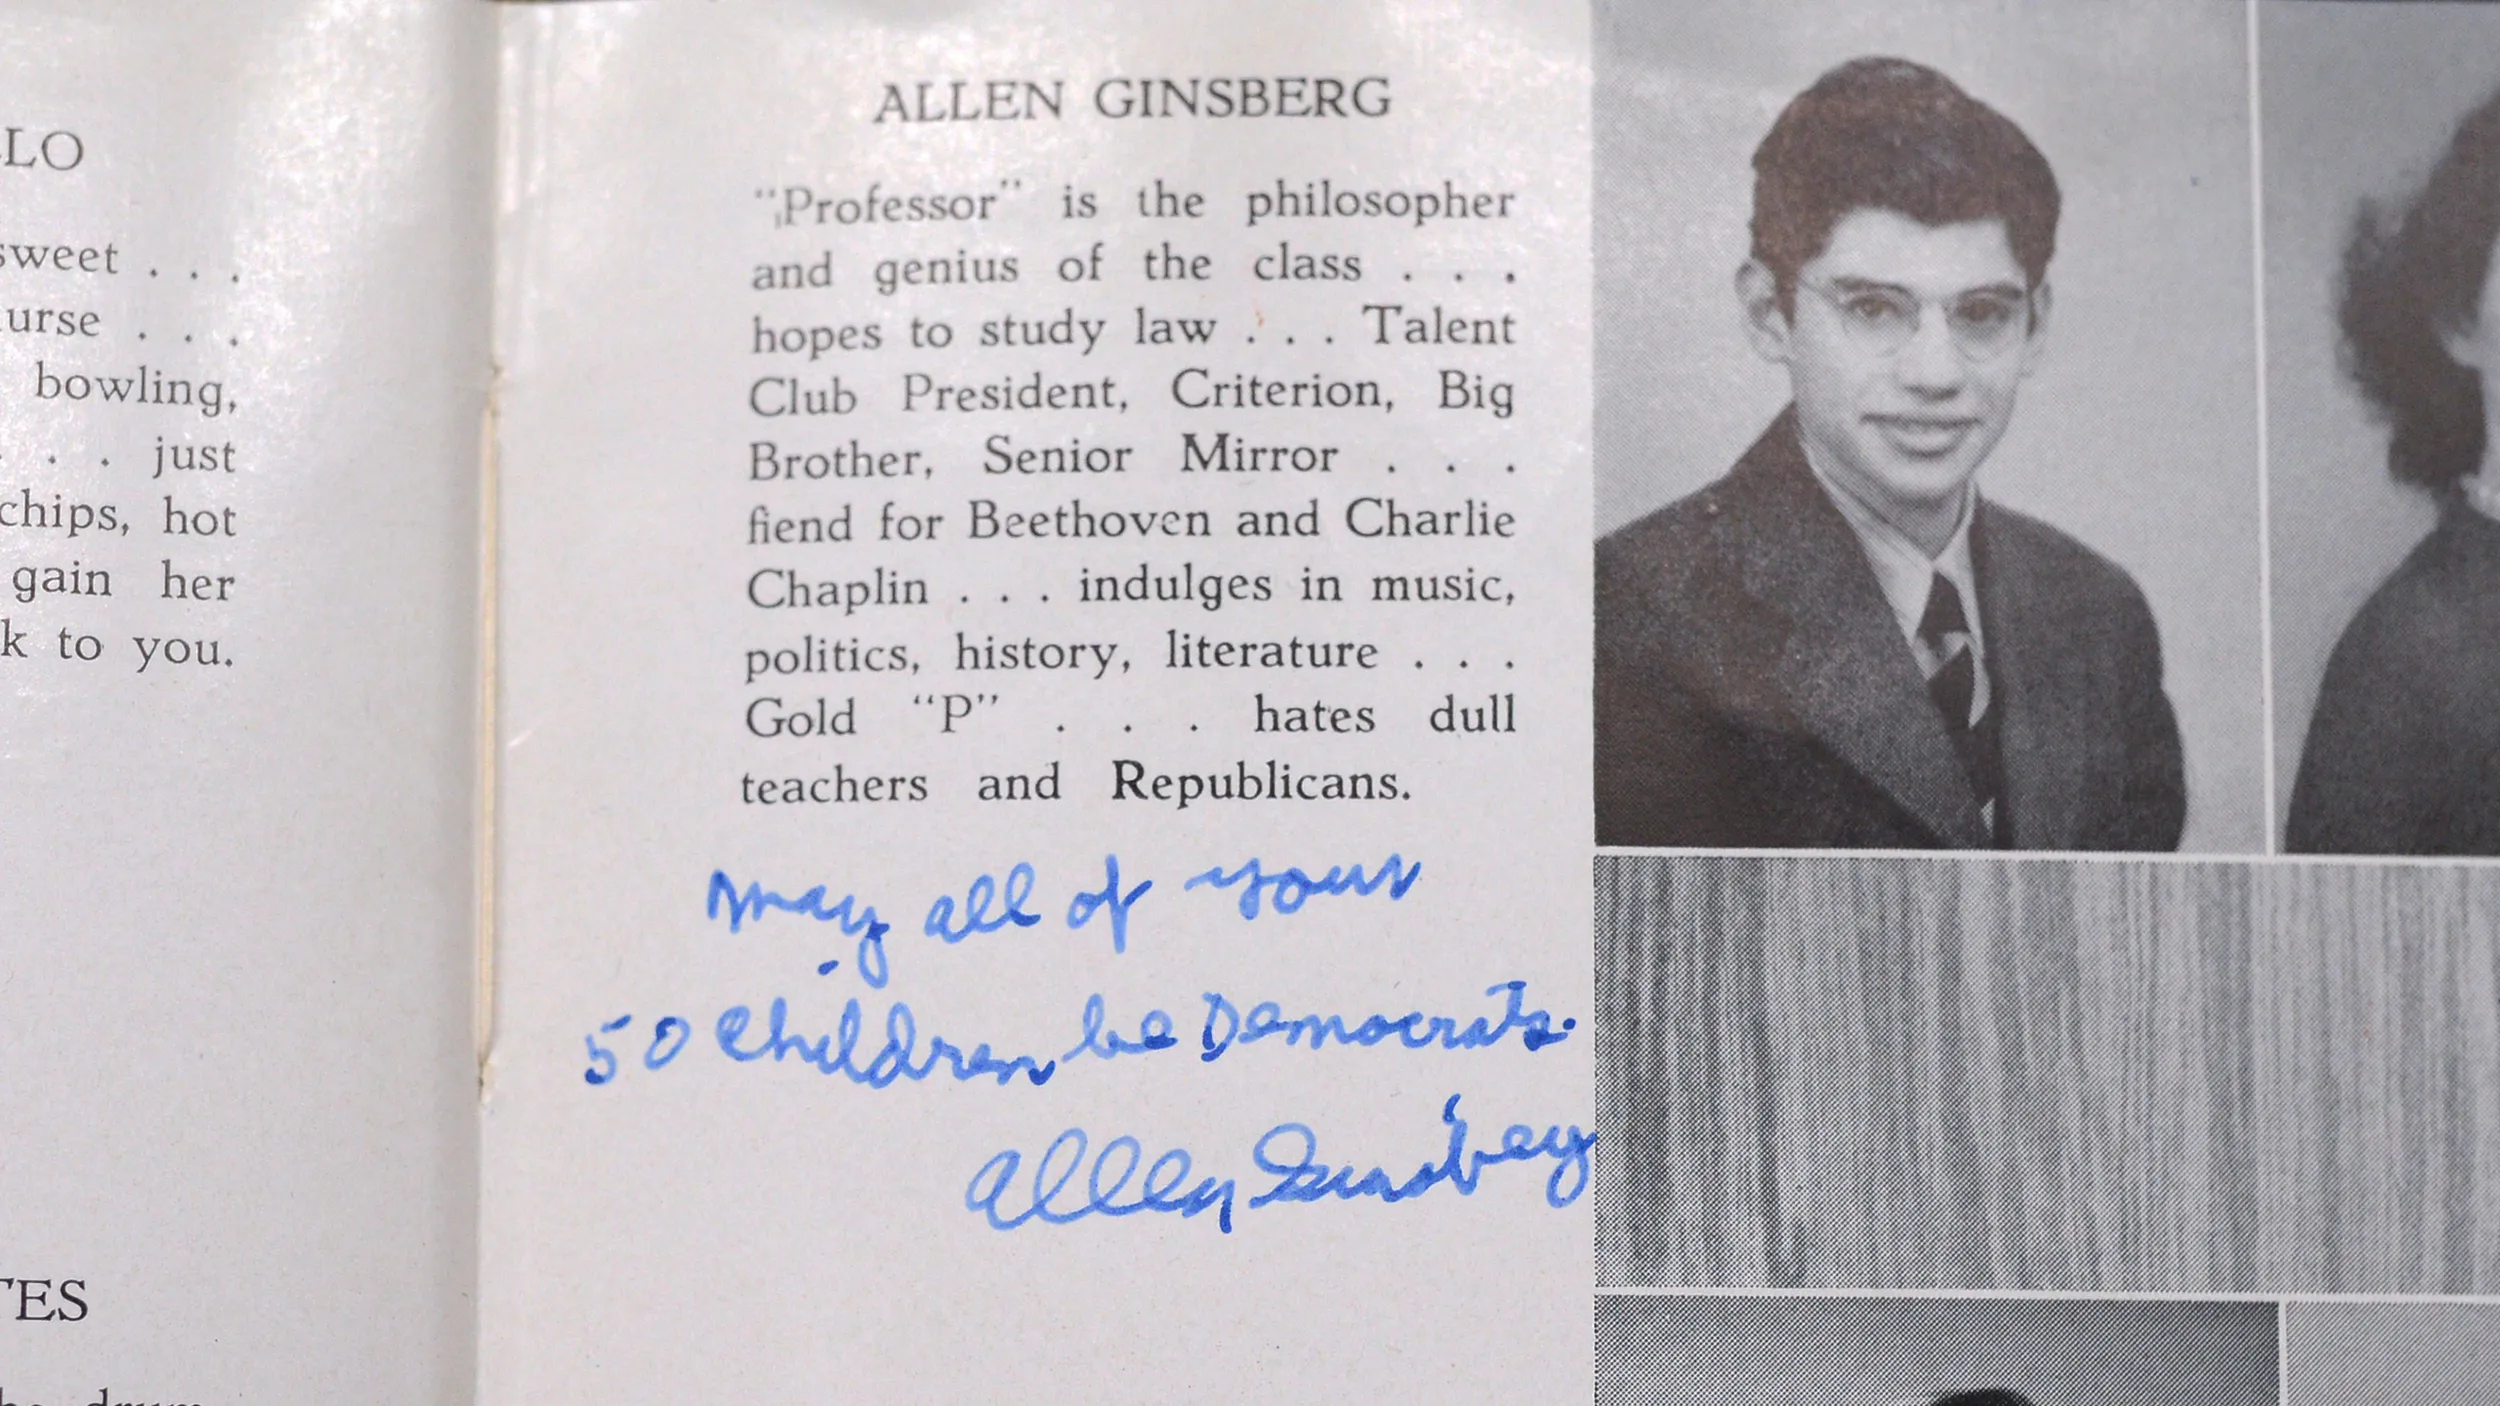 LO
sweet . . .
urse . . .
bowling,
. . . just
chips, hot
gain her
k to you.
TES
drum
ALLEN GINSBERG
"Professor" is the philosopher
and genius of the class . . .
hopes to study law . . . Talent
Club President, Criterion, Big
Brother, Senior Mirror . . .
fiend for Beethoven and Charlie
Chaplin . . . indulges in music,
politics, history, literature . . .
Gold "P" . . . hates dull
teachers and Republicans.
May all of your
50 Children be Democrats.
Allen Ginsberg